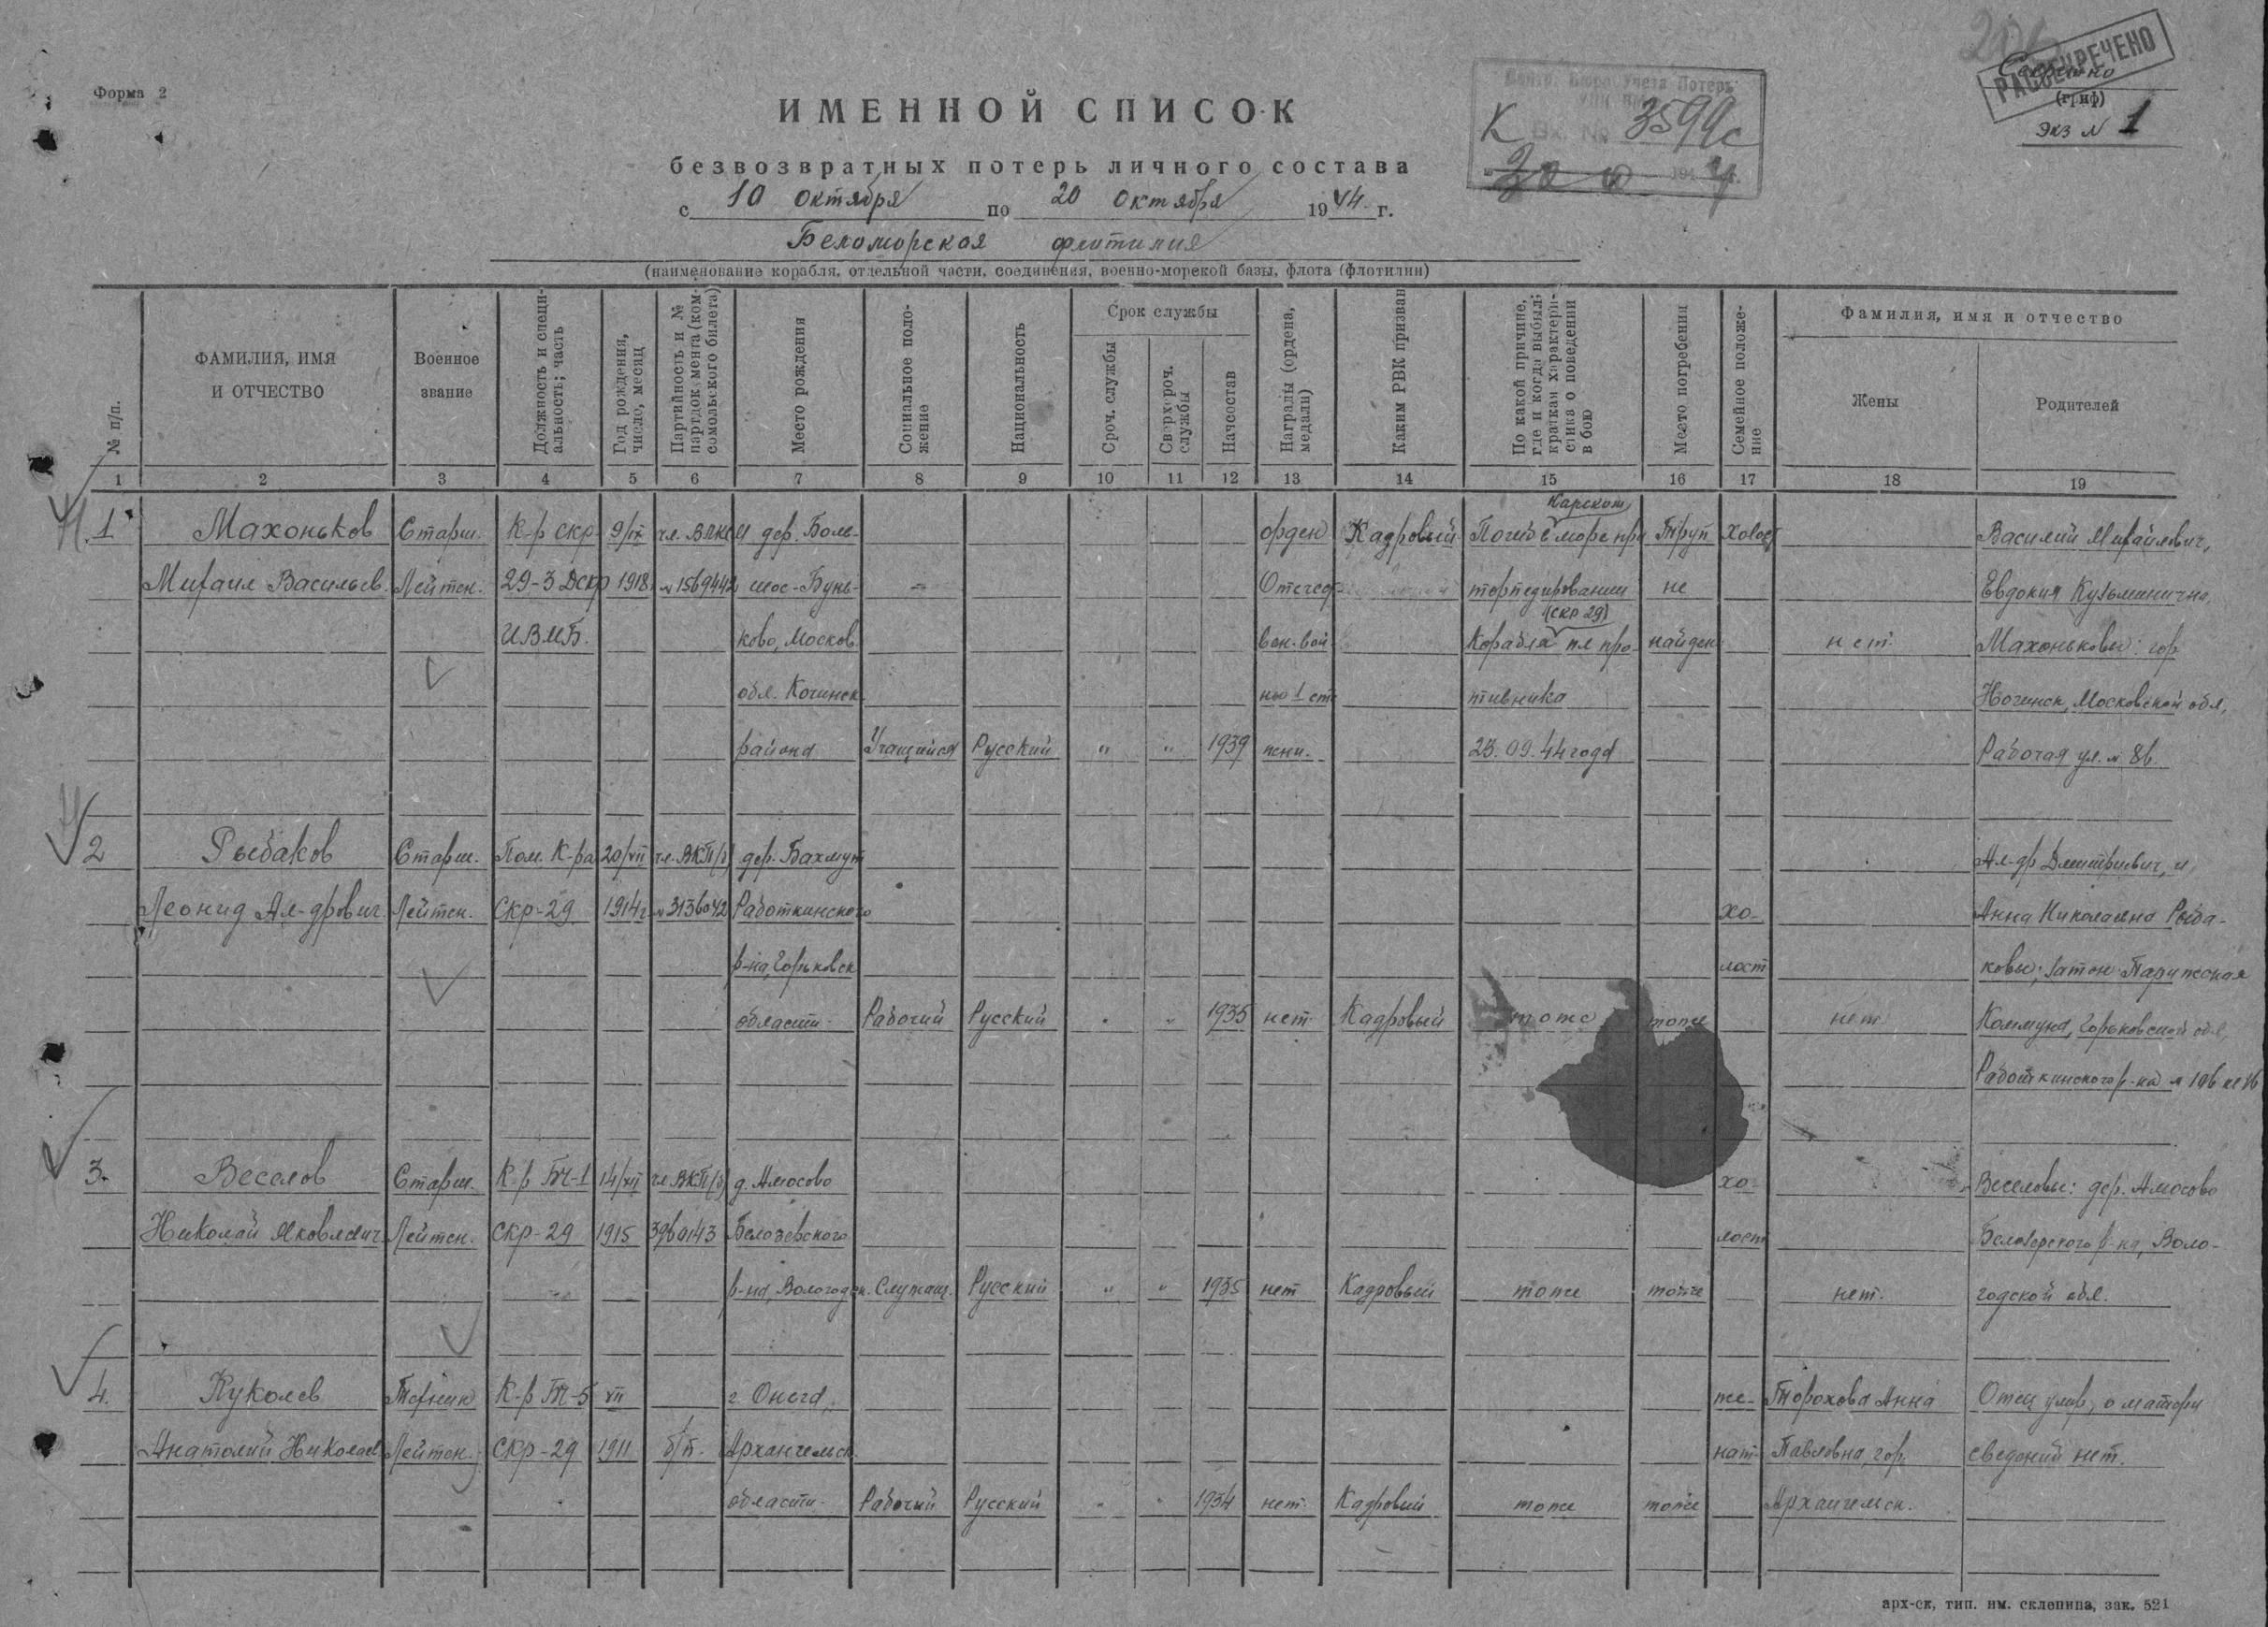 Форма 2
РАССЕКРЕЧЕНО
Секретно
(гриф)
экз № 1
ИМЕННОЙ СПИСОК
безвозвратных потерь личного состава
с 10 октября по 20 октября 1944 г.
Беломорская флотилия
(наименование корабля, отдельной части, соединения, военно-морской базы, флота (флотилии)
Центр. Бюро Учета Потерь
К Вх. № 3599с
№ п/п.
ФАМИЛИЯ, ИМЯ
И ОТЧЕСТВО
Военное
звание
Должность и специ-
альность; часть
Год рождения,
число, месяц
Партийность и №
партдокумента (ком-
сомольского билета)
Место рождения
Социальное поло-
жение
Национальность
Срок службы
Сроч. службы
Сверхсроч.
службы
Начсостав
Награды (ордена,
медали)
Каким РВК призван
По какой причине,
где и когда выбыл;
краткая характери-
стика о поведении
в бою
Место погребения
Семейное положе-
ние
Фамилия, имя и отчество
Жены
Родителей
1 2 3 4 5 6 7 8 9 10 11 12 13 14 15 16 17 18 19
Карском
1 Махоньков Старш. К-р СКР 9/IX чл. ВЛКСМ дер. Боль- орден Кадровый Погиб в море при Труп Холост Василий Михайлович,
Михаил Васильев. Лейтен. 29-3 ДСКР 1918 № 1569442 шое-Бунь- Отечеств торпедировании не Евдокия Кузьминична
(СКР 29)
ИВМБ. ково, Москов. вен. вой- корабля пл про- найден нет. Махоньковы: гор
обл. Ногинск. ны 1 сте тивника Ногинск, Московской обл,
района Учащийся Русский " " 1939 пени. 23.09.44 года Рабочая ул. №
2 Рыбаков Старш. Пом. К-ра 20/VII чл. ВКП(б) дер. Бахмут Ал-др Дмитриевич, и
Леонид Ал-дрович Лейтен. СКР-29 1914г № 3136042 Работкинского хо- Анна Николаевна Рыба-
р-на, Горьковск лост ковы; затон Парижская
области. Рабочий Русский " " 1935 нет. Кадровый тоже тоже нет Коммуна, Горьковской обл,
Работкинского р-на
3. Веселов Старш. К-р БЧ-1 14/XII чл ВКП(б) д. Амосово хо- Веселовы: дер. Амосово
Николай Яковлевич Лейтен. СКР-29 1915 3960143 Белозерского лост Белозерского р-на, Воло-
р-на, Вологодск. Служащ. Русский " " 1935 нет Кадровый тоже тоже нет. годской обл.
4. Куколев Техник К-р БЧ-5 VII г. Онега, же- Торохова Анна Отец умер, о матери
Анатолий Николаев Лейтен. СКР-29 1911 б/п. Архангельск. нат. Павловна, гор. сведений нет.
области. Рабочий Русский " " 1934 нет. Кадровый тоже тоже Архангельск.
арх-ск, тип. им. склепина, зак. 521